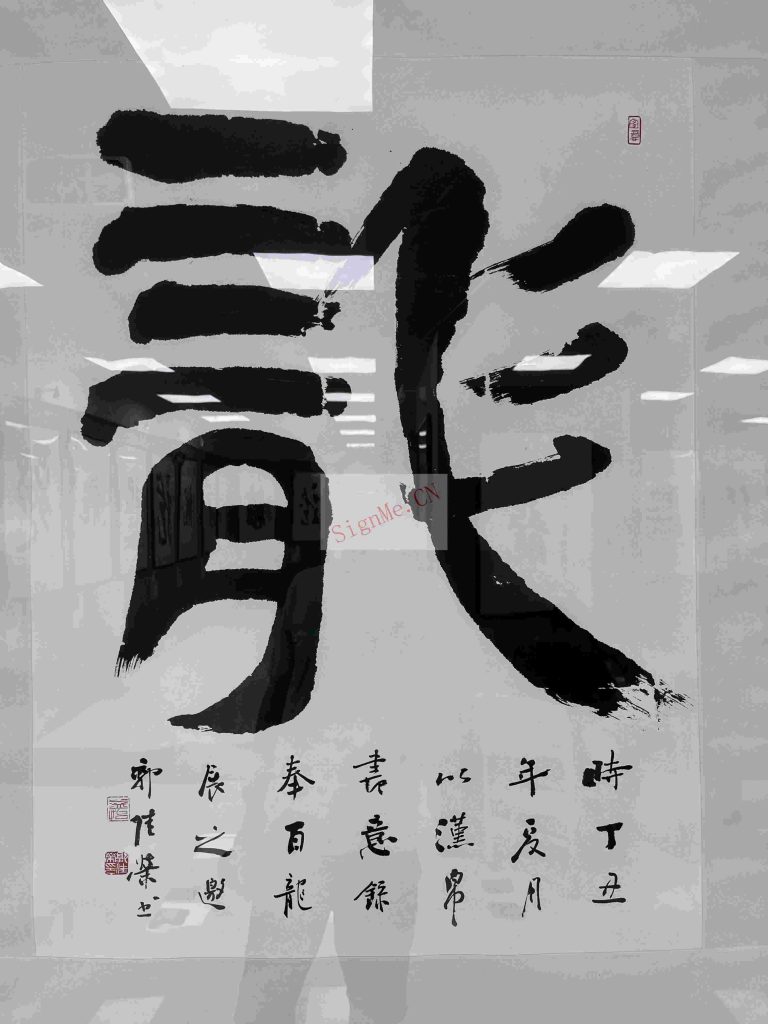 龍
時丁丑
年夏月
以漢帛
書意錄
奉百龍
展之邀
郭佳榮书
SignMe.CN